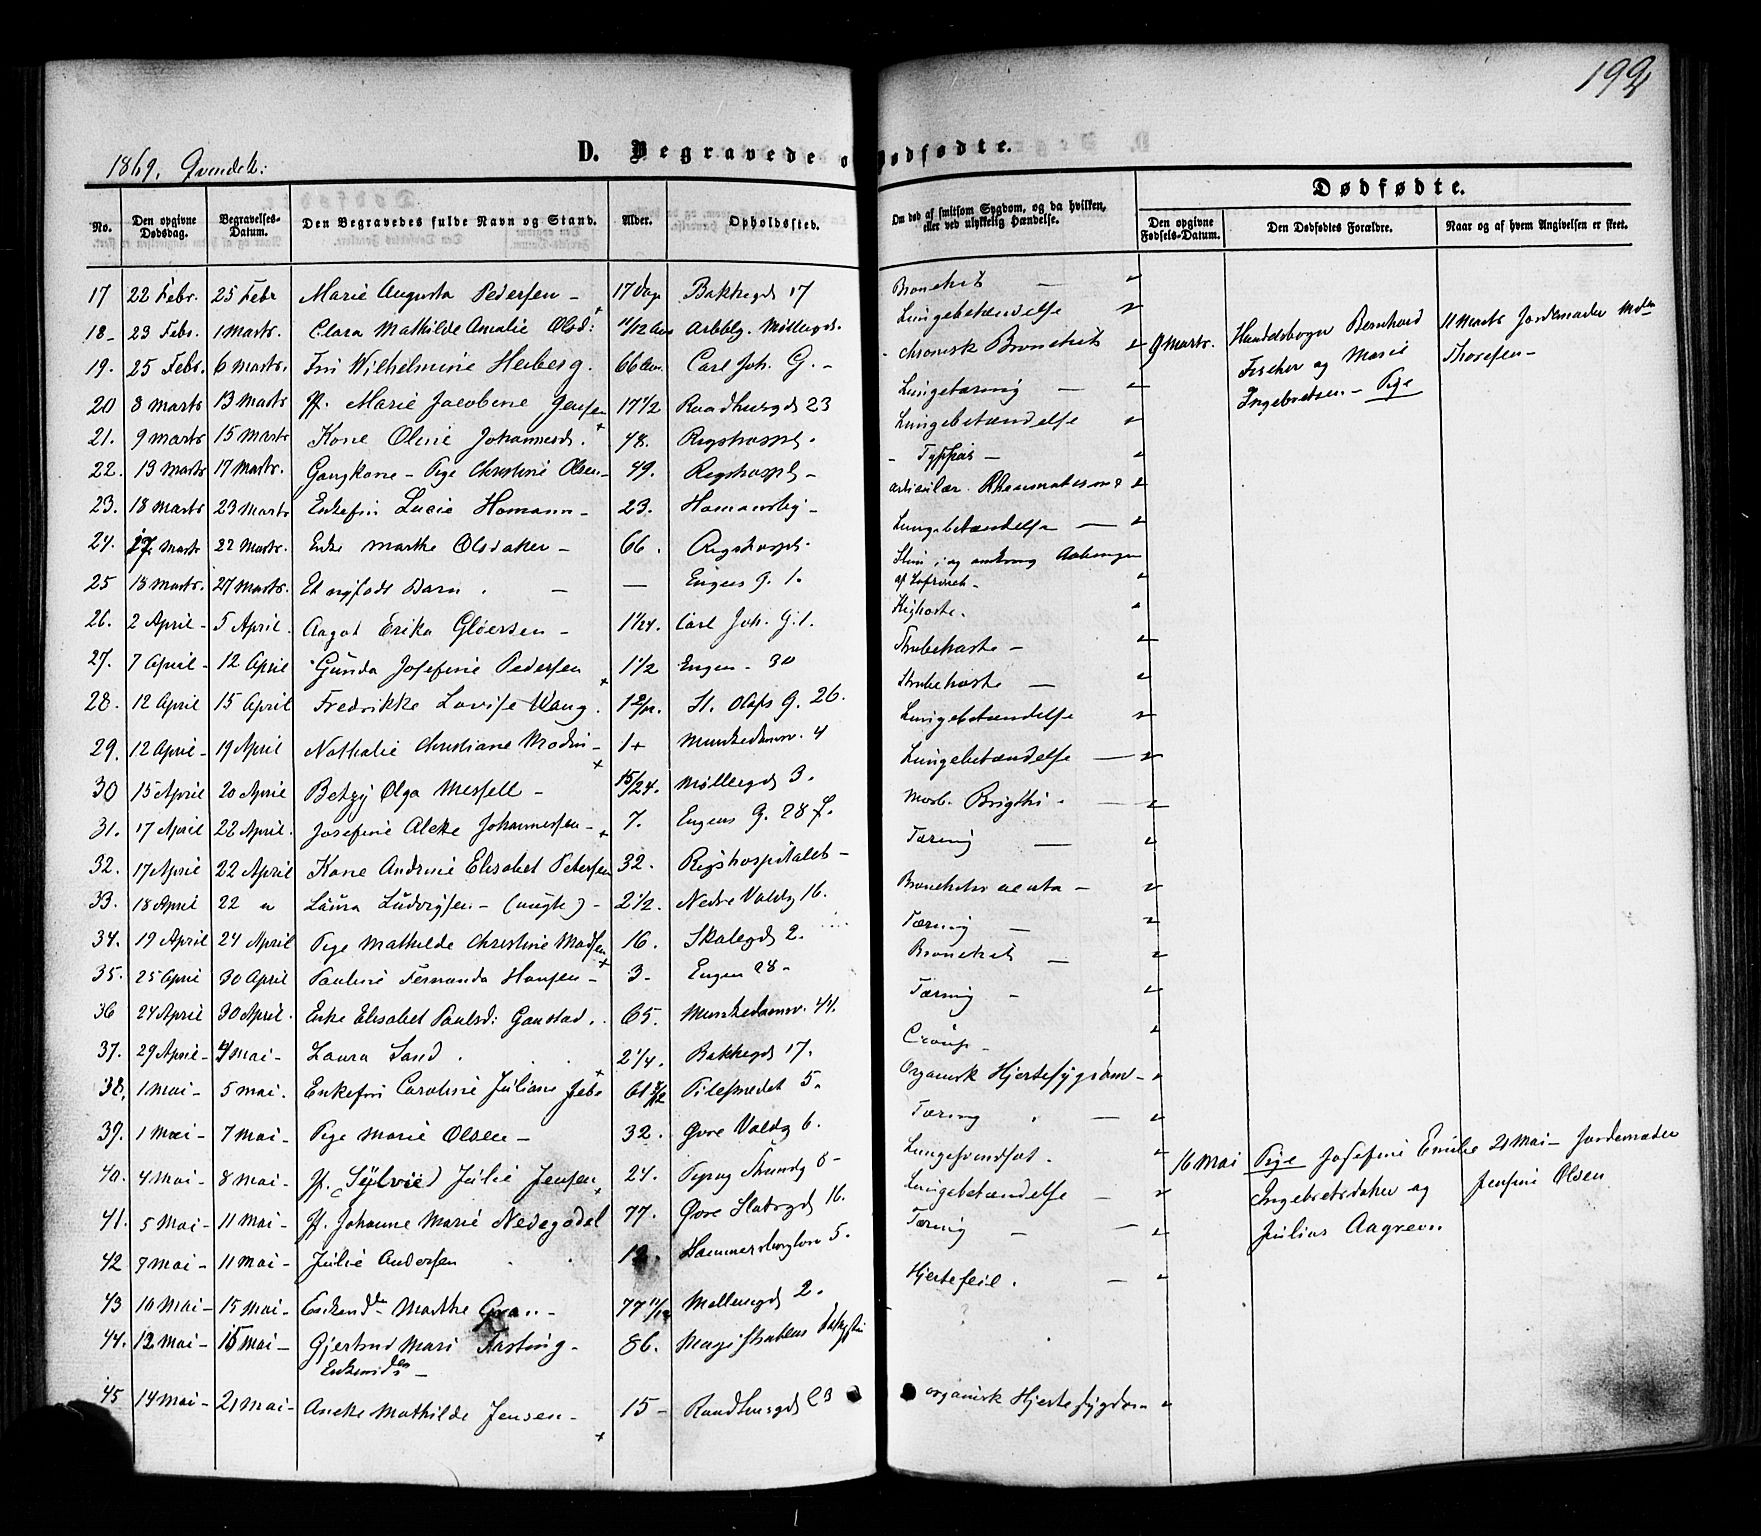 199
1869. Qvindek:
D. Begravede o
Dødfødte.
Dødfødte.
No. Den opgivne Dødsdag. Begravelses-Datum. Den Begravedes fulde Navn og Stand. Alder. Opholdssted. Om død af smitsom Sygdom, og da hvilken, eller ved ulykkelig Hændelse. Den opgivne Fødsels-Datum. Den Dødfødtes Forældre. Naar og af hvem Angivelsen er skeet.
17 22 Febr. 25 Febr Marie Augusta Pedersen - 17 Dage Bakkegd 17 Bronchit -
18- 23 Febr. 1 Marts. Clara Mathilde Amalie Olsd: 11/12 Aar Arbbg. Møllergd. Lungebetændelse
19. 25 Febr. 6 Marts. Frú Wilhelmine Heiberg. 66 Aar. Carl Joh. G. - chronisk Bronchit 9 Marts. Handelsbogh Bernhard 11 Marts Jordemoder
Fischer og Marie Thoresen -
20 8 Marts 13 Marts Jf. Marie Jacobine Jensen 17 1/2 Raadhusgd 23 Lungetæring - Ingebretsen - Pige
21. 9 Marts 15 Marts Kone Oline Johannesd. 48. Rigshospt. Lungebetændelse
22. 13 Marts 17 Marts. Gangkone - Pige Christine Olsen - 49. Rigshospt - - Typhus -
23. 18 Marts 23 Marts Enkefrú Lucie Homann - 23. Homansby - articulær Rheumatisme
24. 17 Marts 22 Marts. Enke Marthe Olsdaker - 66. Rigshospt. Lungebetændelse -
25 13 Marts. 27 Marts. Et nyfødt Barn. - - Engens G. 1. Sliim i og omkring Aabningen
af Luftrøret -
26. 2 April - 5 April. Aagot Erika Gløersen - 1 1/24. Carl Joh. G. 1. Kighoste.
27. 7 April - 12 April Gúnda Josefine Pedersen 1 1/2 Engen - 30 Strubehoste -
28. 12 April 15 April Fredrikke Lovise Wang. St. Olafs G. 26. Strubehoste -
29. 12 April - 19 April Nathalie Christiane Modin - 1+ Munkedamv. 4 Lungebetændelse
30 15 April 20 April Betzy Olga Mesfell - 15/24. Møllergd 3. Lungebetændelse -
31. 17 April 22 April. Josefine Alette Johannessen - 7. Engens G. 28 f. Morb. Brigthi -
32. 17 April 22 April Kone Andrine Elisabet Petersen 32. Rigshospitalet - Tæring -
33. 18 April 22 " Laúra Lúdvigsen - (uægte) - 2 1/2. Nedre Voldg 16. Bronchitis acuta -
34. 19 April 24 April Pige Mathilde Christine Madsen 16. Skolegd 2. Tæring -
35. 25 April 30 April Pauline Fernanda Hansen - 3 - Engen 28 - Bronchit -
36 24 April 30 April. Enke Elisabet Paulsd: Gaustad. 65. Munkedamv. 44. Tæring -
37. 29 April - 4 Mai - Laura Sand. 2 1/4. Bakkegd 17. Croúp -
38. 1 Mai - 5 Mai. Enkefrú Caroline Júliane Jebe 61 Pilestrædet 5. Organisk Hjertesygdom -
39. 1 Mai - 7 Mai - Pige Marie Olsen - 32. Øvre Voldg 6. Tæring -
40. 4 Mai - 8 Mai - Jf. (Sylvie) Júlie Jensen 24. 8 - Lungesvindsot. 16 Mai Pige Josefine Emilie 21 Mai - Jordemoder
41. 5 Mai - 11 Mai - Jf. Johanne Marie Nedegodel 77. Øvre Slotsgd 16. Lungebetændelse - Ingebretsdaker og Jensine Olsen
42 7 Mai - 11 Mai - Júlie Andersen Hammersborgtorv 5. Tæring - Július Aagren.
43 10 Mai - 15 Mai - Marthe Gran - 77 11/12 Møllergd 2. Hjertefeil.
44. 12 Mai - 15 Mai - Gjertrud Mari Fasting - 86. Magistratens
45 14 Mai - 21 Mai - Ancke Mathilde Jensen - 15 - Raadhusgd 23 organisk Hjertesygdom